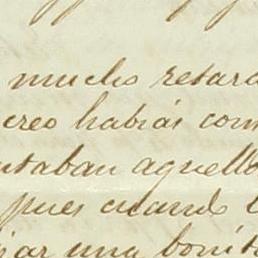 mucho retard
creo habias com
ntaban aquello
pues cuando
jar una bonit